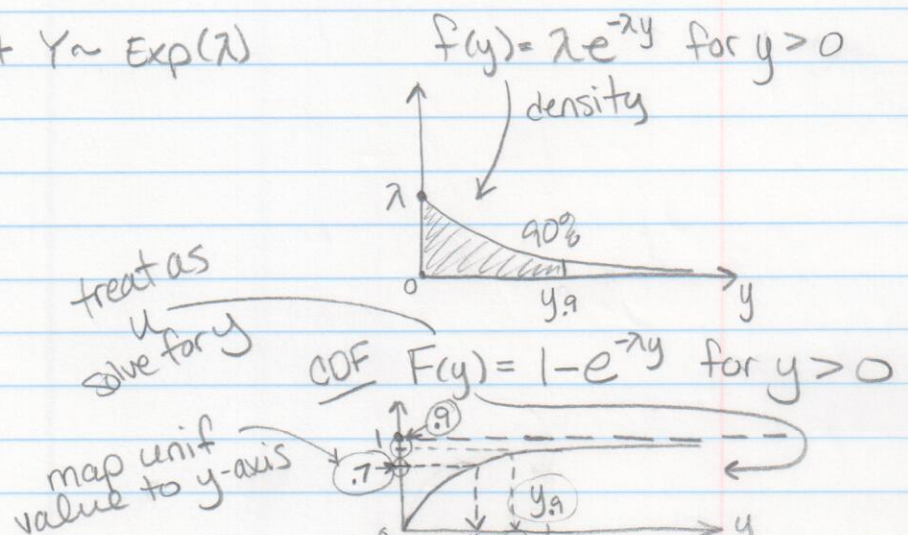 Y~ Exp(λ)
f(y)= λe^-λy for y>0
density
λ
90%
0
y.9
y
treat as
u
solve for y
CDF F(y)= 1-e^-λy for y>0
map unif
value to y-axis
1
.9
.7
y.9
y